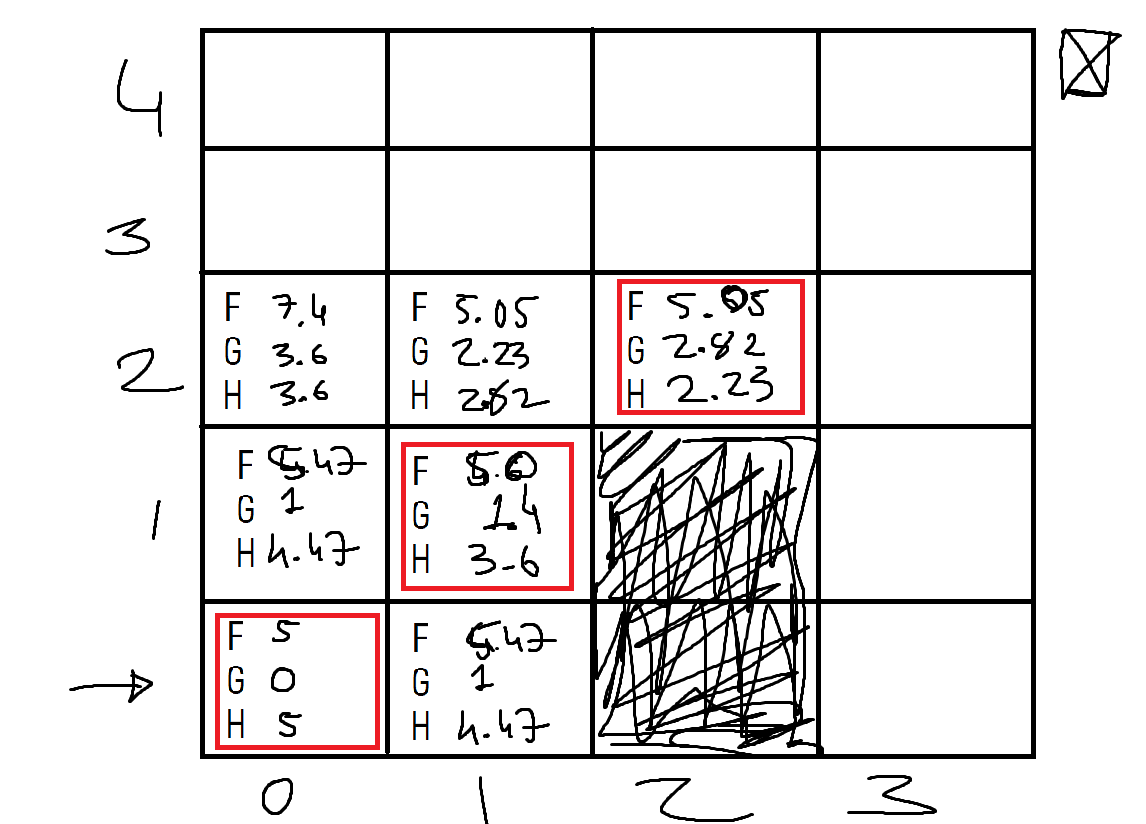 4
3
2
F 7.4
G 3.6
H 3.6
F 5.05
G 2.23
H 2.82
F 5.05
G 2.82
H 2.23
1
F 5.47
G 1
H 4.47
F 5.0
G 1.4
H 3.6
F 5
G 0
H 5
F 5.47
G 1
H 4.47
0 1 2 3